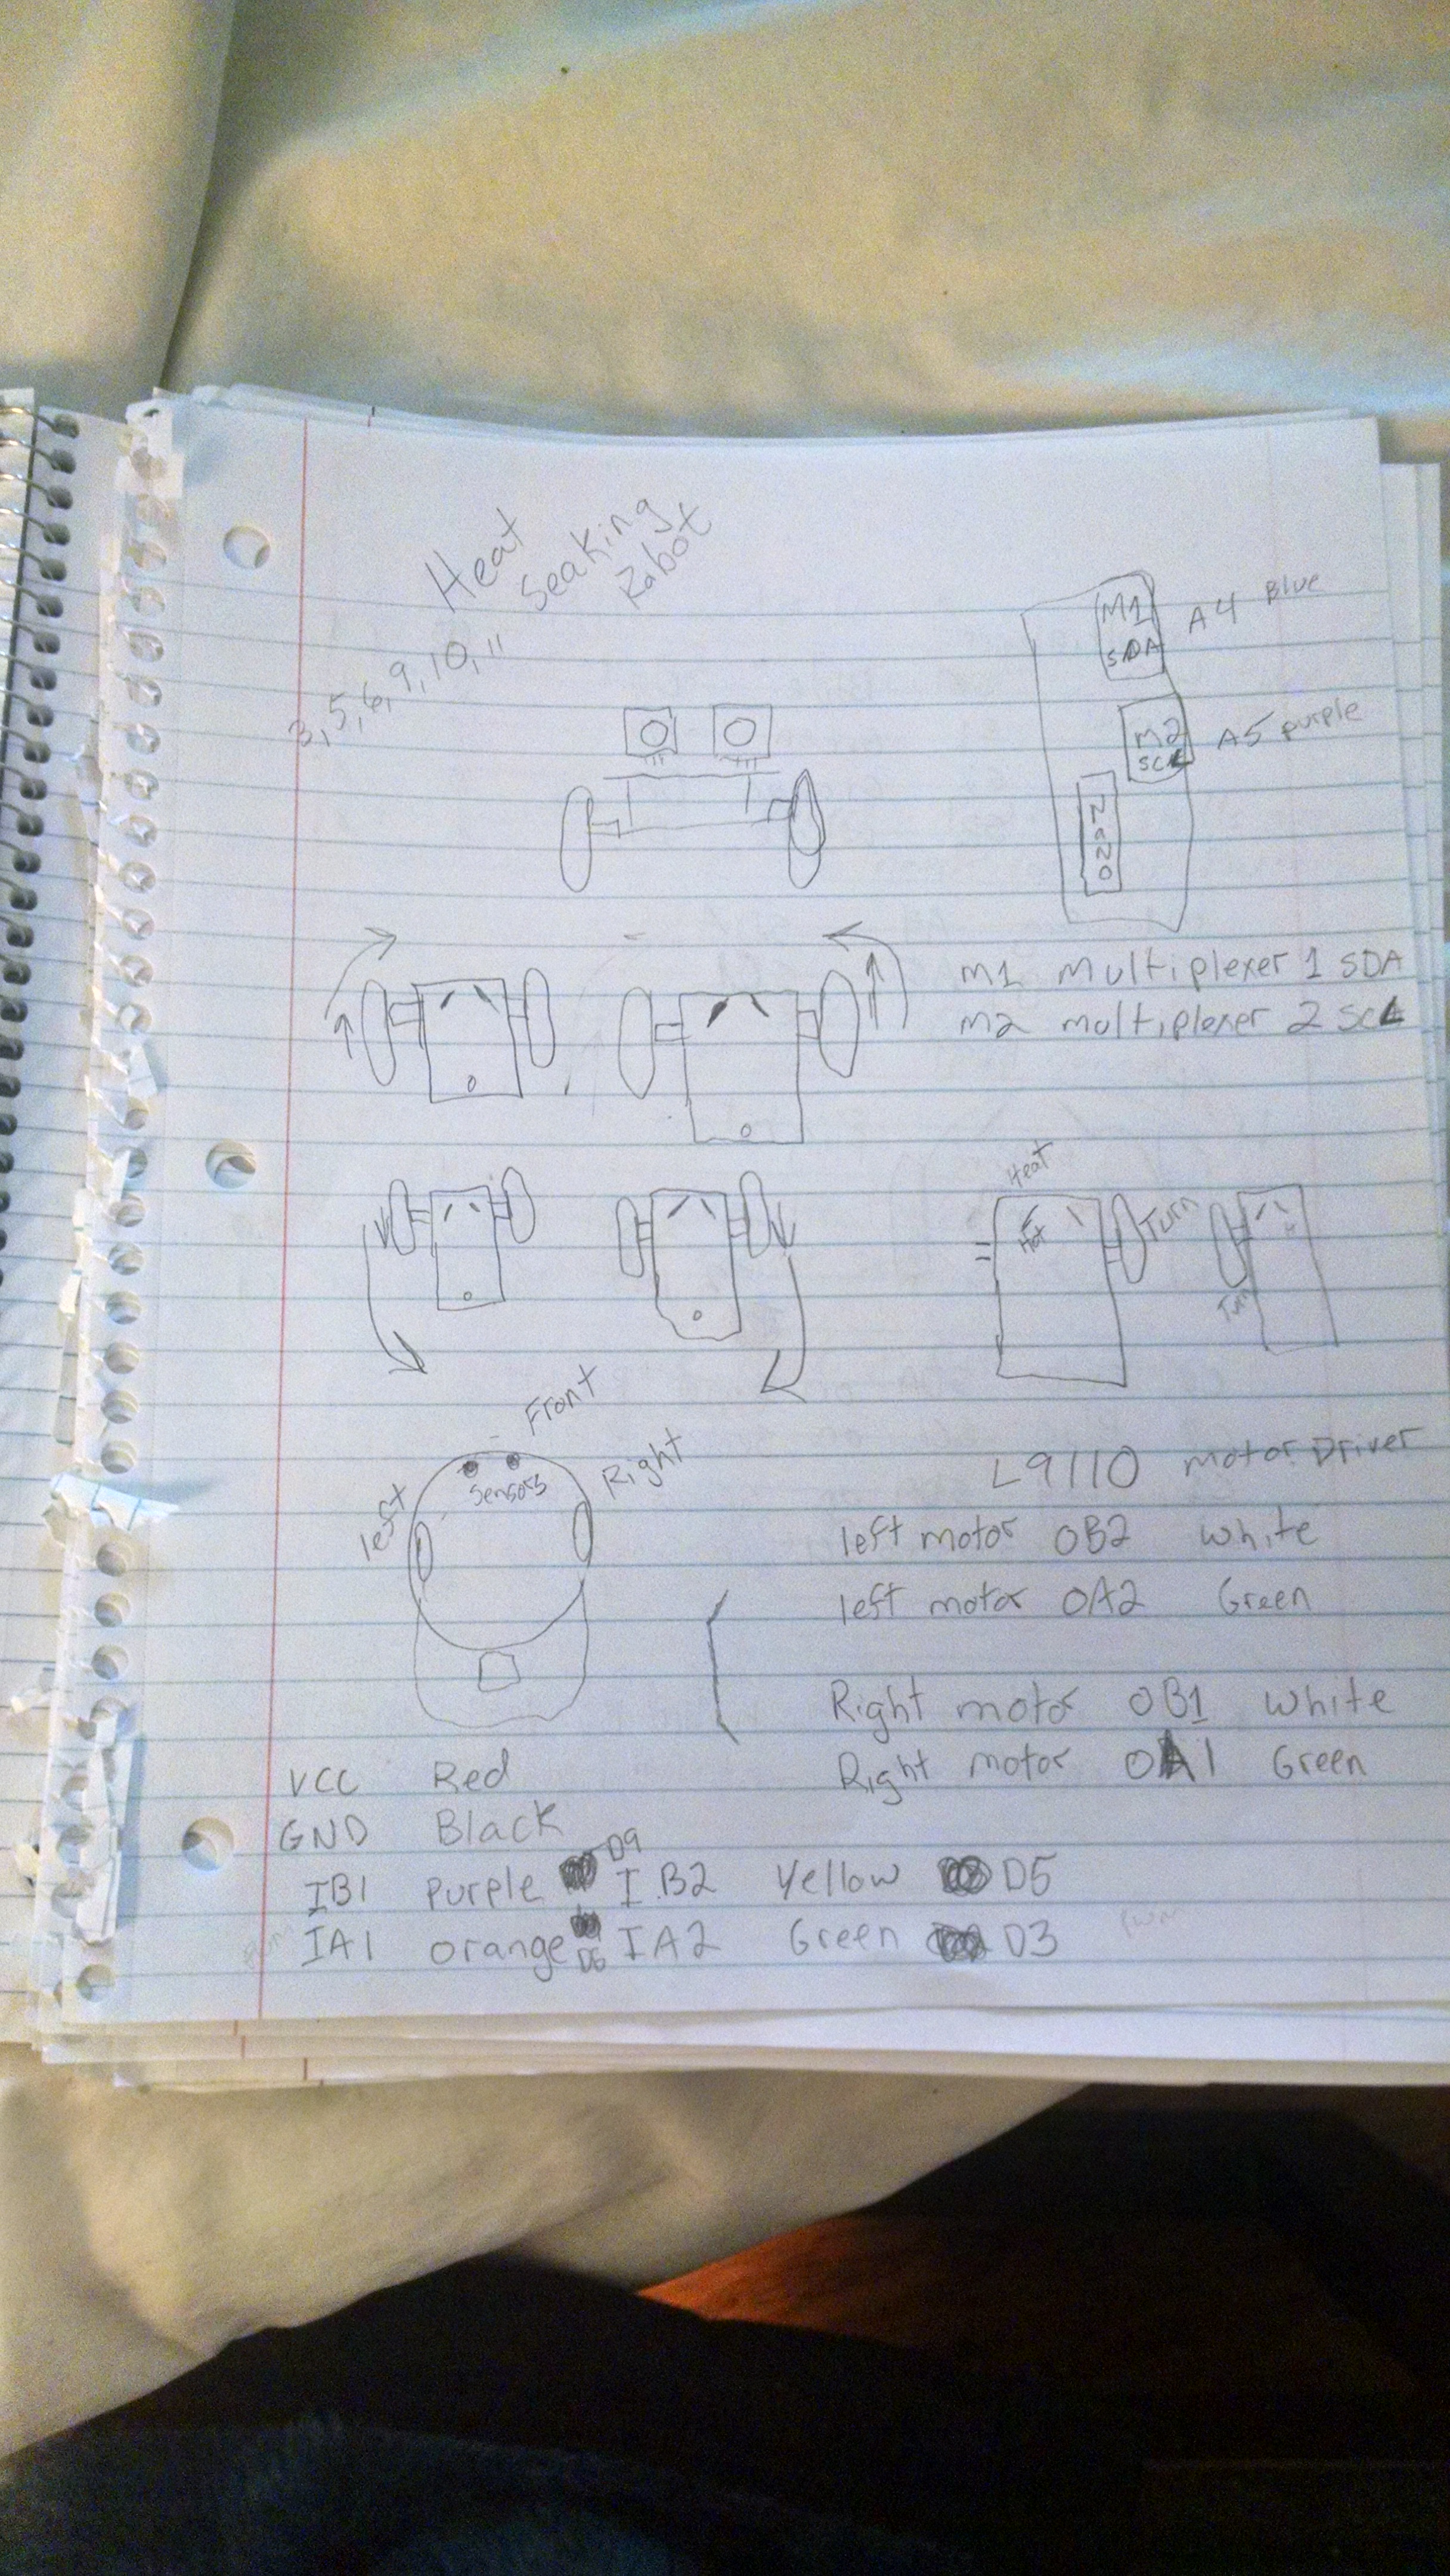 Heat
Seaking
Robot
3,5,6,9,10,11
M1
SDA
A4 Blue
M2
SCL
A5 purple
M1 Multiplexer 1 SDA
M2 multiplexer 2 SCL
Heat
Hot
Turn
Turn
Front
left
Sensors
Right
L9110 motor Driver
left motor OB2 White
left motor OA2 Green
Right motor OB1 White
Right motor OA1 Green
VCC Red
GND Black
IB1 purple D9 IB2 Yellow D5
IA1 orange D6 IA2 Green D3